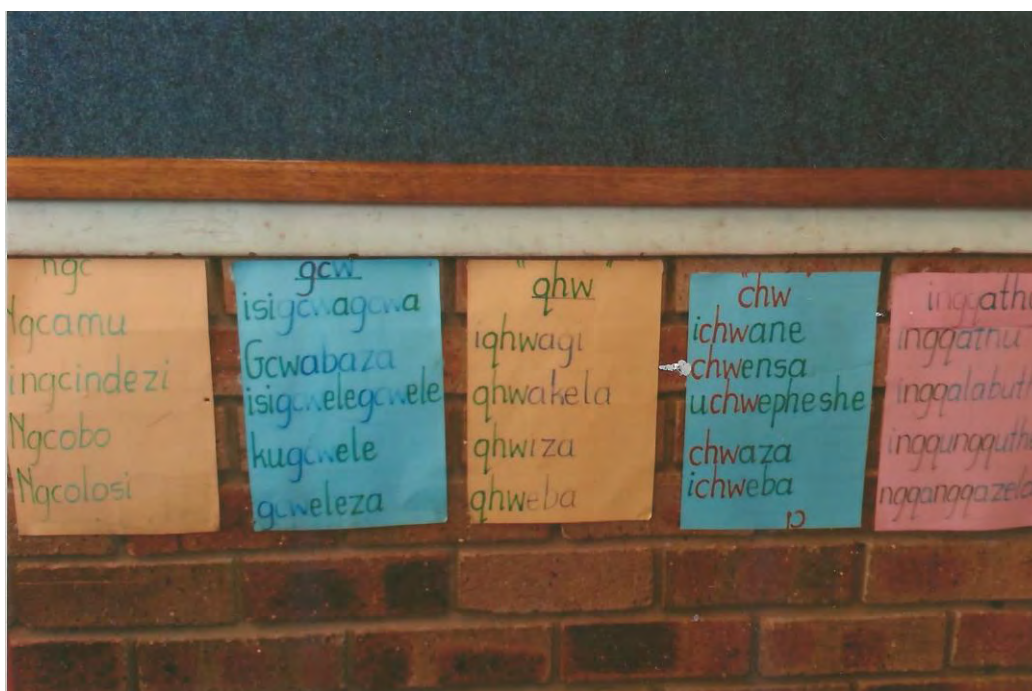 ngc
Ngcamu
ingcindezi
Ngcobo
Ngcolosi
gcw
isigcwagcwa
Gcwabaza
isigcwelegcwele
kugcwele
gcweleza
"qhw"
iqhwagi
qhwakela
qhwiza
qhweba
"chw"
ichwane
chwensa
uchwepheshe
chwaza
ichweba
ingqath
ingqathu
ingqalabuth
ingqungquth
ngqangqazela